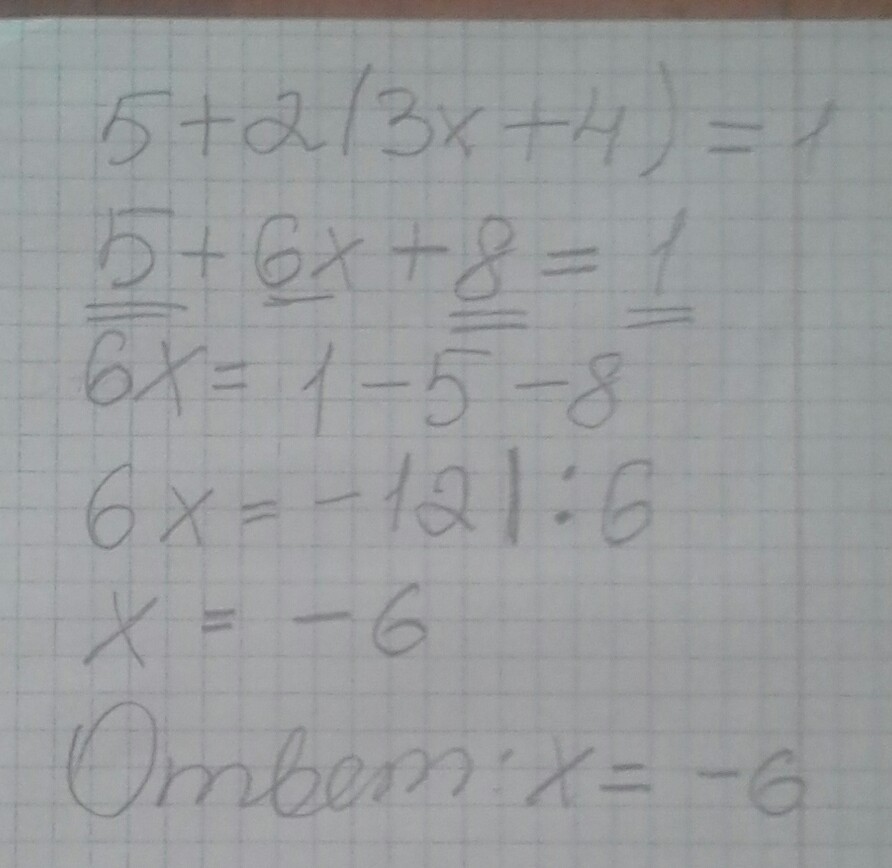 5+2(3x+4)=1
5+6x+8=1
6x=1-5-8
6x=-12|:6
x=-6
Ответ: x=-6